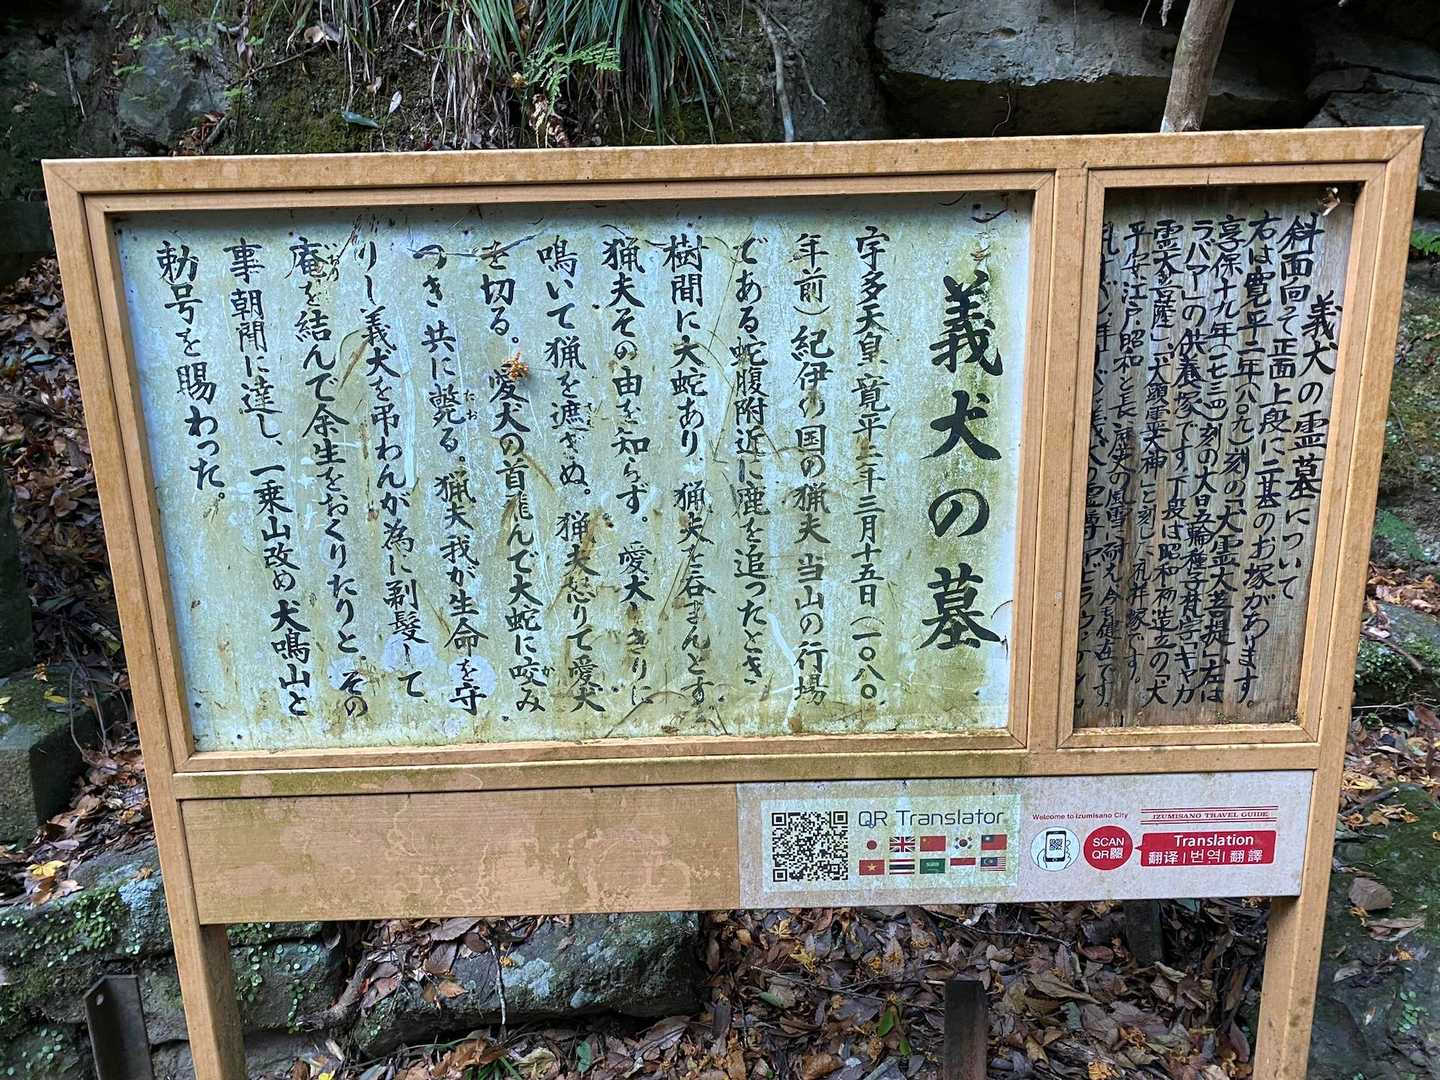 義犬の霊墓について
斜面向って正面上段に二基のお塚があります。
右は寛平二年(八〇九)刻の「犬霊大菩提」、左は
享保十九年(一七三四)刻の大日五輪種子梵字「キャカ
ラバア」の供養塚です。下段は昭和初造立の「犬
霊大菩薩」、「犬頭霊 神」と刻した礼拝塚です。
平安、江戸、昭和と長い歴史の風雪に耐え、今も健在です。
義犬の墓
宇多天皇寛平二年三月十五日(一〇八〇
年前)紀伊の国の猟夫当山の行場
である蛇腹附近に鹿を追ったとき
樹間に大蛇あり、猟夫を呑まんとす。
猟夫その由を知らず。愛犬しきりに
鳴いて猟を遮ぎぬ。猟夫怒りて愛犬
を切る。愛犬の首飛んで大蛇に咬み
つき共に斃る。猟夫我が生命を守
りし義犬を弔わんが為に剃髪して、
庵を結んで余生をおくりたりと、その
事朝聞に達し、一乗山改め犬鳴山と
勅号を賜わった。
QR Translator
Welcome to Izumisano City
IZUMISANO TRAVEL GUIDE
SCAN
QR
Translation
翻译 | 번역 | 翻譯